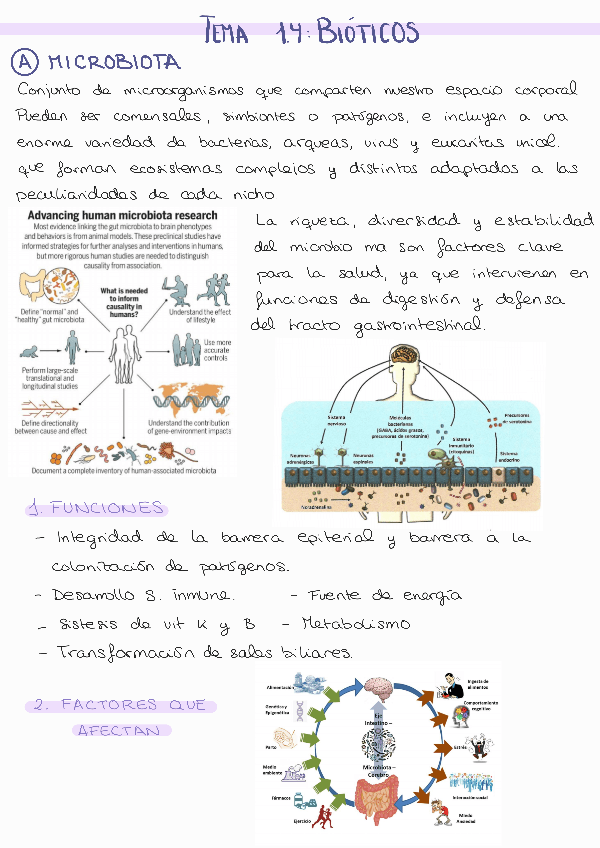 TEMA 14: BIÓTICOS
A MICROBIOTA
Conjunto de microorganismos que comparten nuestro espacio corporal
Pueden ser comensales, simbiontes o patógenos, e incluyen a una
enorme variedad de bacterias, arqueas, virus y eucariotas unicel.
que forman ecosistemas complejos y distintos adaptados a las
peculiaridades de cada nicho
Advancing human microbiota research
Most evidence linking the gut microbiota to brain phenotypes
and behaviors is from animal models. These preclinical studies have
informed strategies for further analyses and interventions in humans,
but more rigorous human studies are needed to distinguish
causality from association.
What is needed
to inform
causality in
humans?
Define "normal" and
"healthy" gut microbiota
Understand the effect
of lifestyle
Use more
accurate
controls
Perform large-scale
translational and
longitudinal studies
Define directionality
between cause and effect
Understand the contribution
of gene-environment impacts
Document a complete inventory of human-associated microbiota
La riqueza, diversidad y estabilidad
del microbio ma son factores clave
para la salud, ya que intervienen en
funciones de digestión y defensa
del tracto gastrointestinal.
Sistema
nervioso
Moléculas
bacterianas
(GABA, ácidos grasos,
precursores de serotonina)
Precursores
de serotonina
Sistema
inmunitario
(citoquinas)
Sistema
endocrino
Neuronas
adrenérgicas
Neuronas
espinales
Noradrenalina
1. FUNCIONES
- Integridad de la barrera epiterial y barrera a la
colonización de patógenos.
- Desarrollo S. inmune. - Fuente de energía
- Sistesis de vit K y B - Metabolismo
- Transformación de sales biliares.
2. FACTORES QUE
AFECTAN
Alimentación
Genética y
Epigenética
Parto
Medio
ambiente
Fármacos
Ejercicio
Eje
Intestino –
Microbiota –
Cerebro
Ingesta de
alimentos
Comportamiento
cognitivo
Estrés
Interacción social
Miedo
Ansiedad